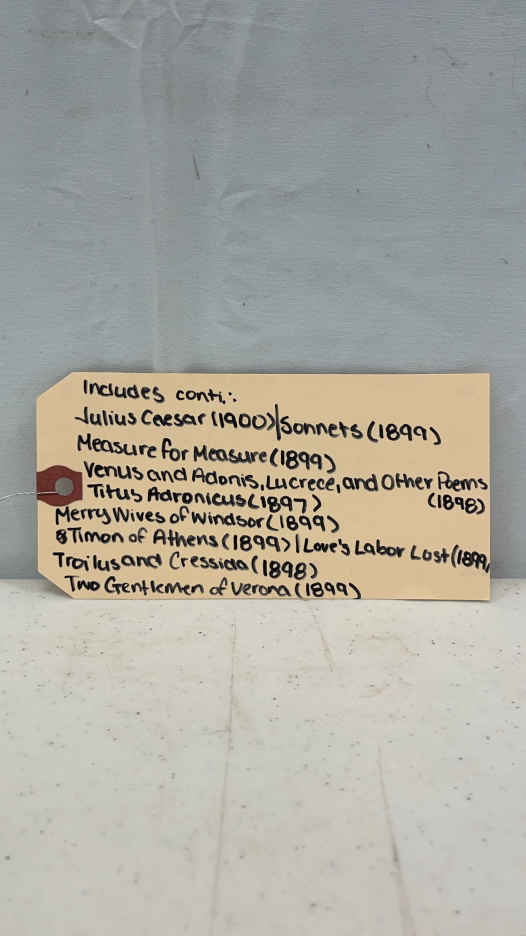 Includes conti.:
Julius Caesar (1900)|Sonnets (1899)
Measure for Measure (1899)
Venus and Adonis, Lucrece, and Other Poems
Titus Adronicus (1897) (1898)
Merry Wives of Windsor (1899)
Timon of Athens (1899) | Love's Labor Lost (1899)
Troilus and Cressida (1898)
Two Gentlemen of Verona (1899)